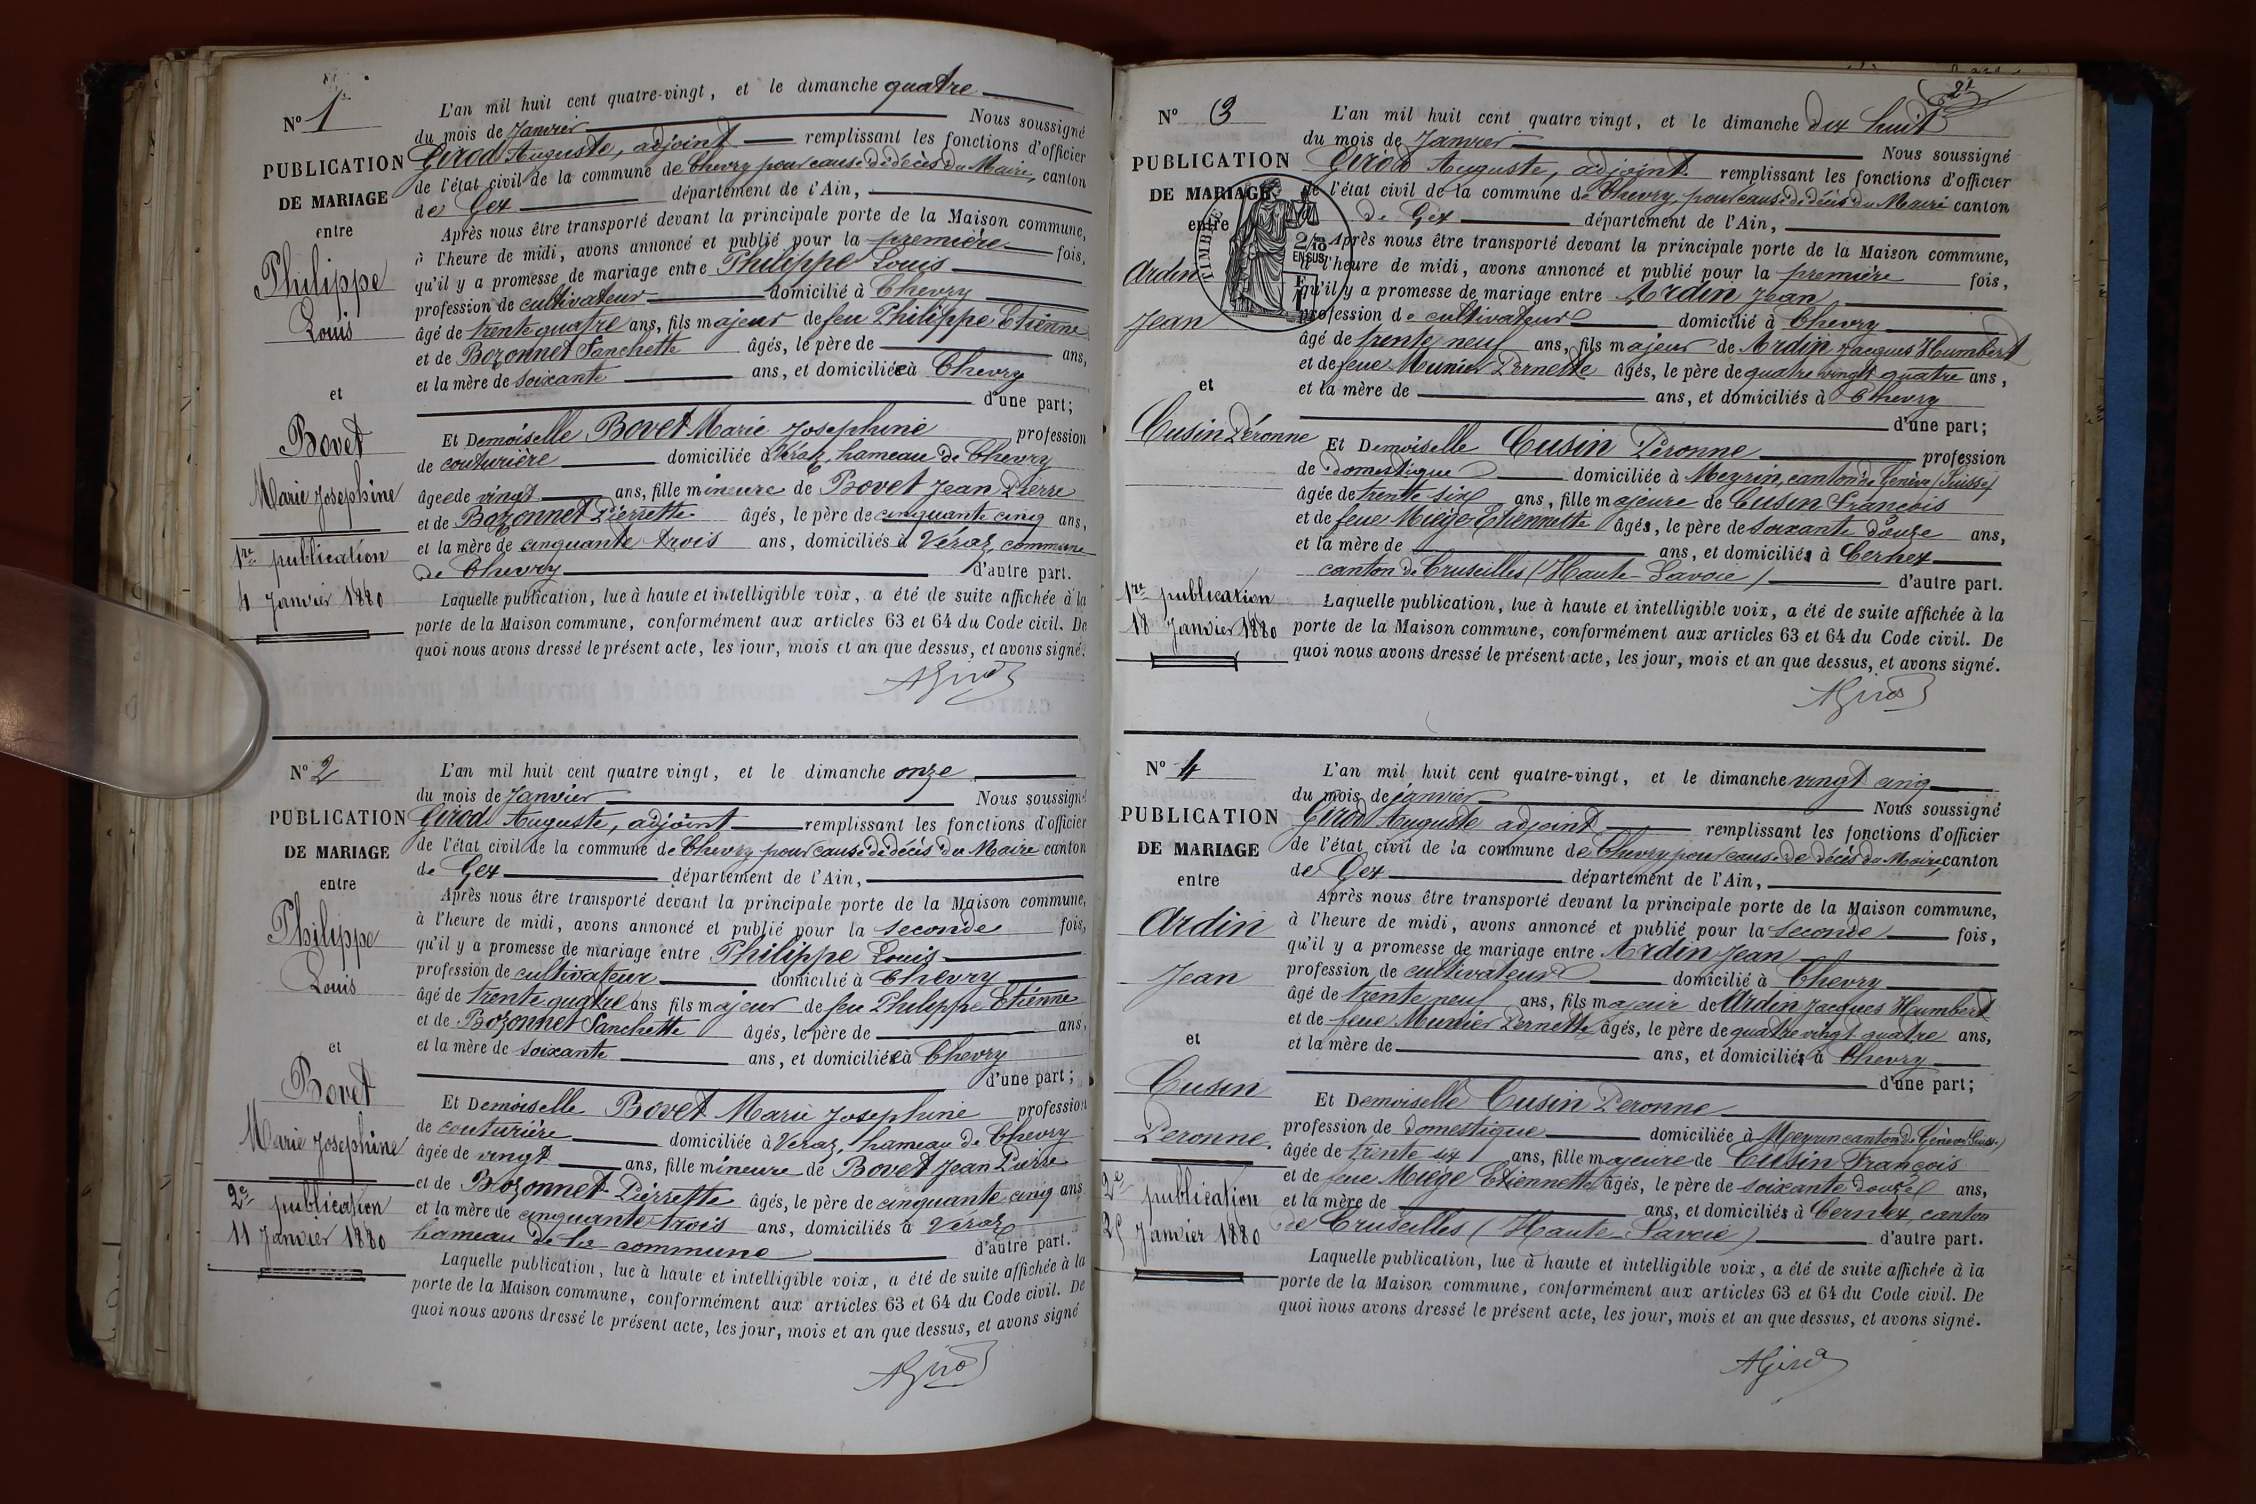 N° 1
PUBLICATION
DE MARIAGE
entre
Philippe
Louis
et
Bovet
Marie Josephine
1re publication
4 Janvier 1880
L'an mil huit cent quatre-vingt, et le dimanche quatre
du mois de Janvier Nous soussigné
Girod Auguste, adjoint remplissant les fonctions d'officier
de l'état civil de la commune de Chevry pour cause de décès du Maire, canton
de Gex département de l'Ain,
Après nous être transporté devant la principale porte de la Maison commune,
à l'heure de midi, avons annoncé et publié pour la première fois,
qu'il y a promesse de mariage entre Philippe Louis
profession de cultivateur domicilié à Chevry
âgé de trente quatre ans, fils majeur de feu Philippe Etienne
et de Bozonnet Fanchette âgés, le père de ans,
et la mère de soixante ans, et domiciliée à Chevry
d'une part;
Et Demoiselle Bovet Marie Josephine profession
de couturière domiciliée à Véraz, hameau de Chevry
âgée de vingt ans, fille mineure de Bovet Jean Pierre
et de Bozonnet Pierrette âgés, le père de cinquante cinq ans,
et la mère de cinquante trois ans, domiciliés à Véraz, commune
de Chevry d'autre part.
Laquelle publication, lue à haute et intelligible voix, a été de suite affichée à la
porte de la Maison commune, conformément aux articles 63 et 64 du Code civil. De
quoi nous avons dressé le présent acte, les jour, mois et an que dessus, et avons signé.
AGirod
N° 2
PUBLICATION
DE MARIAGE
entre
Philippe
Louis
et
Bovet
Marie Josephine
2e publication
11 Janvier 1880
L'an mil huit cent quatre vingt, et le dimanche onze
du mois de Janvier Nous soussigné
Girod Auguste, adjoint remplissant les fonctions d'officier
de l'état civil de la commune de Chevry pour cause de décès du Maire canton
de Gex département de l'Ain,
Après nous être transporté devant la principale porte de la Maison commune,
à l'heure de midi, avons annoncé et publié pour la seconde fois,
qu'il y a promesse de mariage entre Philippe Louis
profession de cultivateur domicilié à Chevry
âgé de trente quatre ans fils majeur de feu Philippe Etienne
et de Bozonnet Fanchette âgés, le père de ans,
et la mère de soixante ans, et domiciliée à Chevry
d'une part;
Et Demoiselle Bovet Marie Josephine profession
de couturière domiciliée à Veraz, hameau de Chevry
âgée de vingt ans, fille mineure de Bovet Jean Pierre
et de Bozonnet Pierrette âgés, le père de cinquante cinq ans
et la mère de cinquante trois ans, domiciliés à Véraz
hameau de la commune d'autre part.
Laquelle publication, lue à haute et intelligible voix, a été de suite affichée à la
porte de la Maison commune, conformément aux articles 63 et 64 du Code civil. De
quoi nous avons dressé le présent acte, les jour, mois et an que dessus, et avons signé
AGirod
2e
N° 3
PUBLICATION
DE MARIAGE
entre
Ardin
Jean
et
Cusin Péronne
1re publication
18 Janvier 1880
TIMBRE
2/10
EN SUS
L'an mil huit cent quatre vingt, et le dimanche dix huit
du mois de Janvier Nous soussigné
Girod Auguste, adjoint remplissant les fonctions d'officier
de l'état civil de la commune de Chevry, pour cause de décès du Maire canton
de Gex département de l'Ain,
Après nous être transporté devant la principale porte de la Maison commune,
à l'heure de midi, avons annoncé et publié pour la première fois,
qu'il y a promesse de mariage entre Ardin Jean
profession de cultivateur domicilié à Chevry
âgé de trente neuf ans, fils majeur de Ardin Jacques Humbert
et de feue Meunier Pernette âgés, le père de quatre vingt quatre ans,
et la mère de ans, et domiciliés à Chevry
d'une part;
Et Demoiselle Cusin Péronne profession
de domestique domiciliée à Meyrin, canton de Genève (Suisse)
âgée de trente six ans, fille majeure de Cusin François
et de feue Miège Etiennette âgés, le père de soixante douze ans,
et la mère de ans, et domiciliés à Cernex
canton de Cruseilles (Haute-Savoie) d'autre part.
Laquelle publication, lue à haute et intelligible voix, a été de suite affichée à la
porte de la Maison commune, conformément aux articles 63 et 64 du Code civil. De
quoi nous avons dressé le présent acte, les jour, mois et an que dessus, et avons signé.
AGirod
N° 4
PUBLICATION
DE MARIAGE
entre
Ardin
Jean
et
Cusin
Peronne
2e publication
25 Janvier 1880
L'an mil huit cent quatre-vingt, et le dimanche vingt cinq
du mois de janvier Nous soussigné
Girod Auguste adjoint remplissant les fonctions d'officier
de l'état civil de la commune de Chevry pour cause de décès du Maire, canton
de Gex département de l'Ain,
Après nous être transporté devant la principale porte de la Maison commune,
à l'heure de midi, avons annoncé et publié pour la seconde fois,
qu'il y a promesse de mariage entre Ardin Jean
profession de cultivateur domicilié à Chevry
âgé de trente neuf ans, fils majeur de Ardin Jacques Humbert
et de feue Munier Pernette âgés, le père de quatre vingt quatre ans,
et la mère de ans, et domiciliés à Chevry
d'une part;
Et Demoiselle Cusin Peronne
profession de domestique domiciliée à Meyrin canton de Genève (Suisse)
âgée de trente six ans, fille majeure de Cusin François
et de feue Miège Etiennette âgés, le père de soixante douze ans,
et la mère de ans, et domiciliés à Cernex, canton
de Cruseilles (Haute-Savoie) d'autre part.
Laquelle publication, lue à haute et intelligible voix, a été de suite affichée à la
porte de la Maison commune, conformément aux articles 63 et 64 du Code civil. De
quoi nous avons dressé le présent acte, les jour, mois et an que dessus, et avons signé.
AGirod